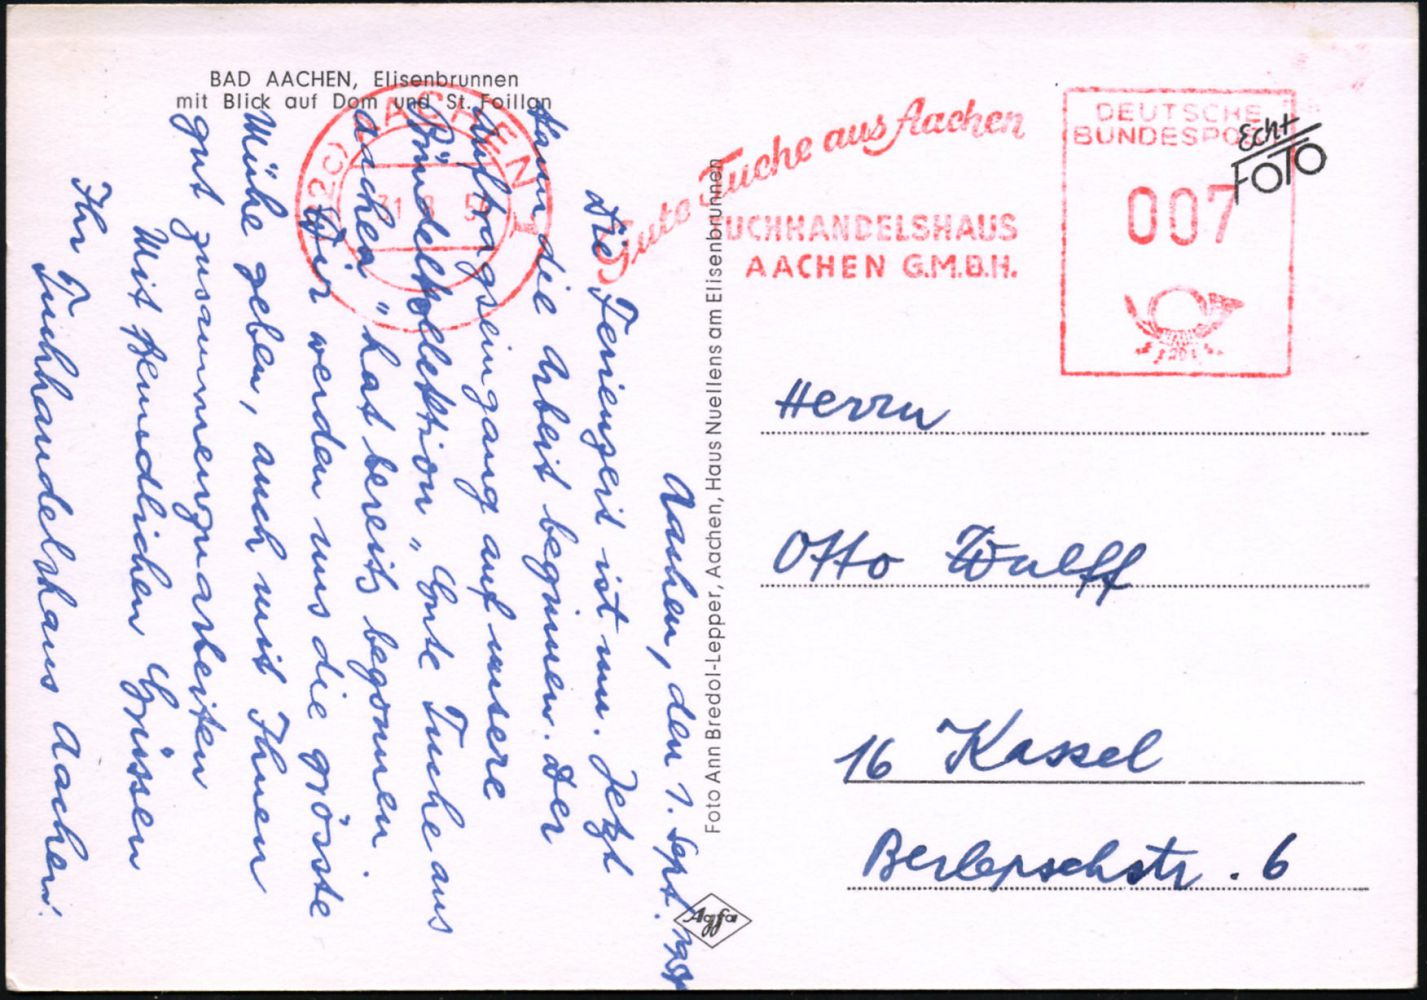 BAD AACHEN, Elisenbrunnen
mit Blick auf Dom und St. Foillan
Aachen, den 1. Sept.
Die Ferienzeit ist um. Jetzt
kann die Arbeit beginnen. Der
Auftragseingang auf unsere
Bündelkollektion „Gute Tuche aus
Aachen" hat bereits begonnen.
Wir werden uns die grösste
Mühe geben, auch mit Ihnen
gut zusammenzuarbeiten
Mit freundlichen Grüssen
Ihr Tuchhandelshaus Aachen.
(22c) AACHEN 1
31
Foto Ann Bredol-Lepper, Aachen, Haus Nuellens am Elisenbrunnen
Agfa
Gute Tuche aus Aachen
TUCHHANDELSHAUS
AACHEN G.M.B.H.
DEUTSCHE
BUNDESPOST
007
Echt
FOTO
Herrn
Otto Wulff
16 Kassel
Berlepschstr. 6